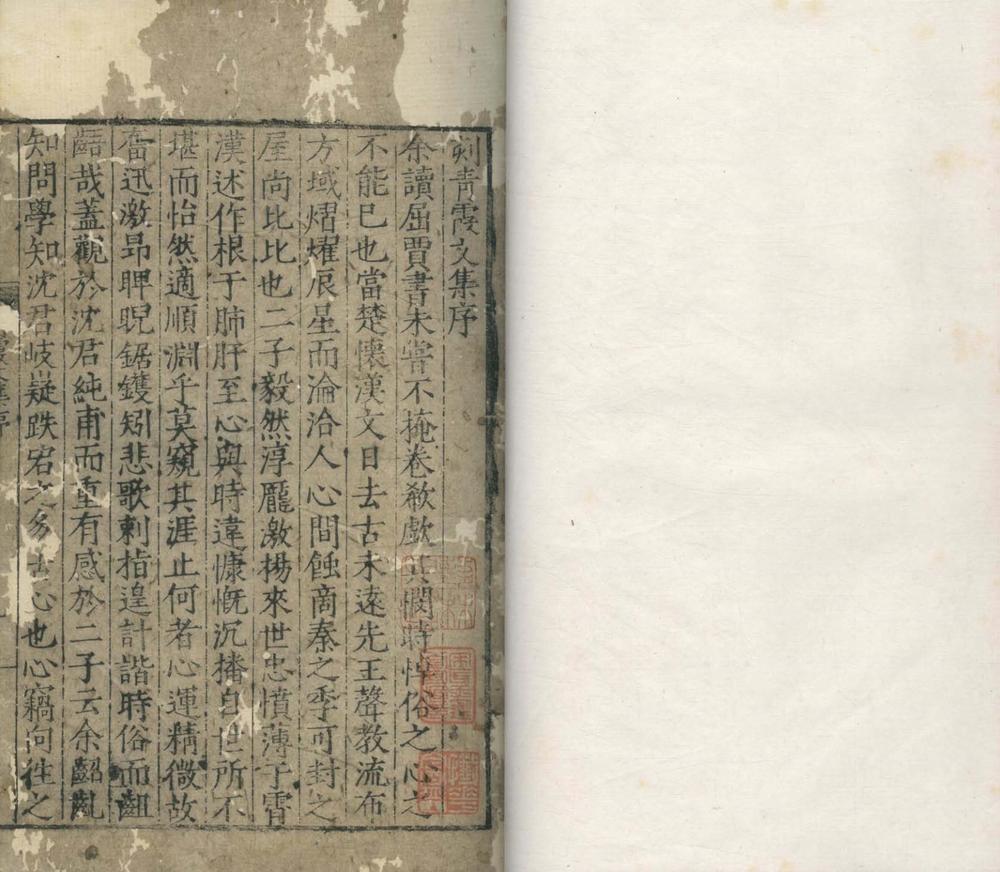 刻青霞文集序
余讀屈賈書未嘗不掩卷欷歔其憫時悼俗之心之
不能已也當楚懷漢文日去古未遠先王聲教流布
方域熠燿辰星而淪洽人心間蝕啇秦之季可封之
屋尚比比也二子毅然淳龐激揚來世忠憤薄于霄
漢述作根于肺肝至心與時違慷慨沉播自世所不
堪而怡然適順淵乎莫窺其涯止何者心運精微故
奮迅激昻睥睨鋸鑊矧悲歌剌指遑計諧時俗而齟
齬哉蓋觀於沈君純甫而重有感於二子云余齠齓
知問學知沈君岐嶷跌宕之多士心也心竊向徃之